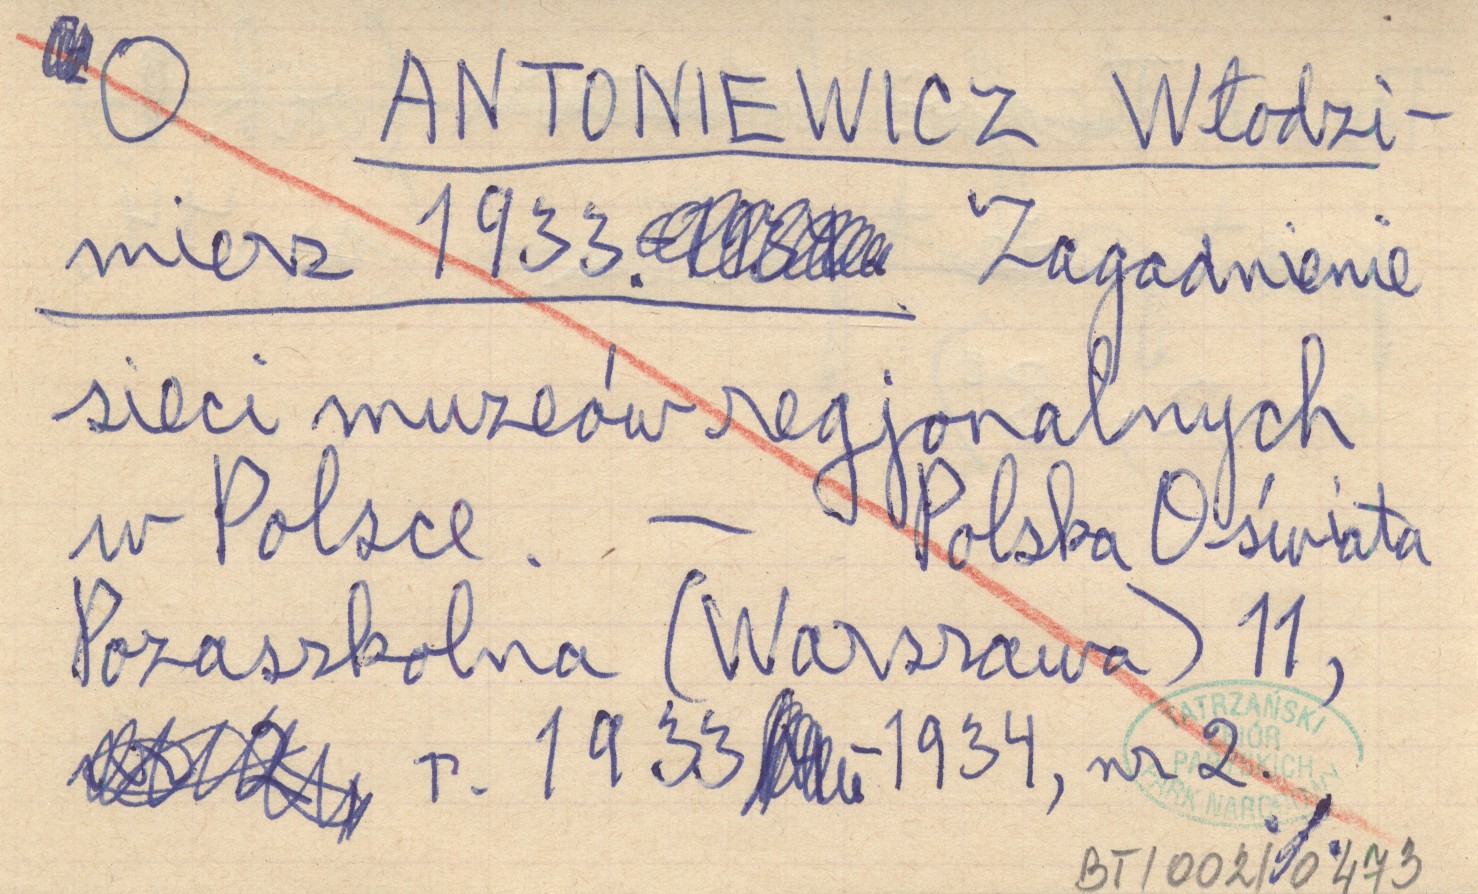 O ANTONIEWICZ Włodzi-
mierz 1933. Zagadnienie
sieci muzeów regjonalnych
w Polsce. — Polska Oświata
Pozaszkolna (Warszawa) 11,
r. 1933-1934, nr 2.
TATRZAŃSKI
ZBIÓR
PARYSKICH
PARK NARODOWY
./.
BT/002/0473